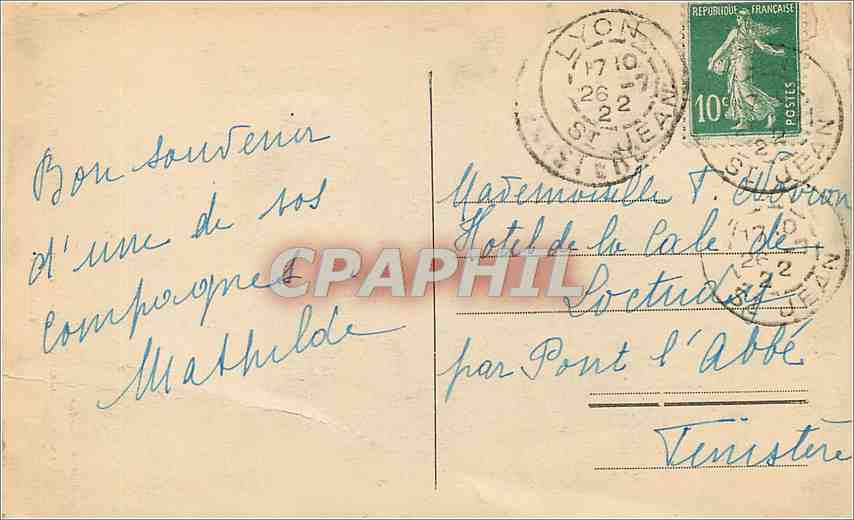 Bon souvenir
d'une de vos
compagnes
Mathilde
LYON
17 10
26 - 7
22
ST JEAN
FINISTERE
REPUBLIQUE FRANÇAISE
10c
POSTES
LYON
17 10
26 - 7
22
ST JEAN
Mademoiselle F.
Hotel de la Cale de
Loctudy
par Pont l'Abbé
Finistère
CPAPHIL